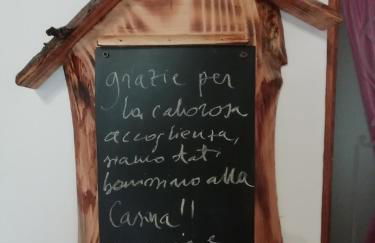 grazie per
la calorosa
accoglienza,
siamo stati
benissimo alla
Casina!!